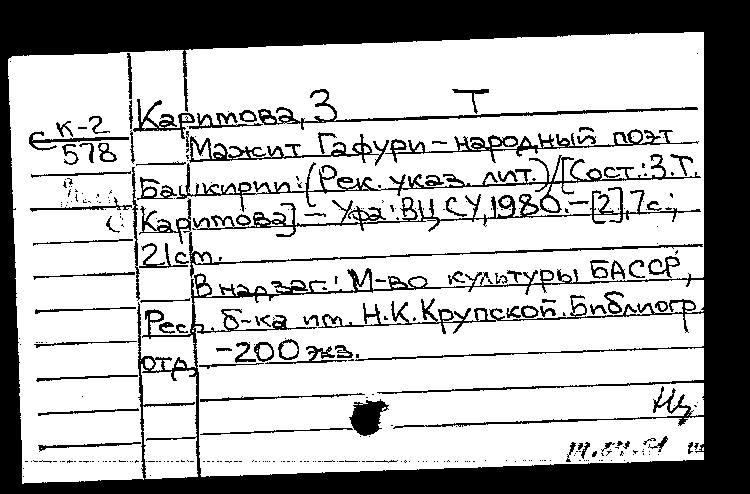 Каримова, З Т
с К-2
578
Мажит Гафури - народный поэт
Башкирии: (Рек. указ. лит.)/[Сост.: З.Т.
Каримова] - Уфа: ВЦ СУ, 1980. - [2], 7с.;
21см.
В надзаг.: М-во культуры БАССР,
Респ. б-ка им. Н.К.Крупской. Библиогр.
отд. -200 экз.